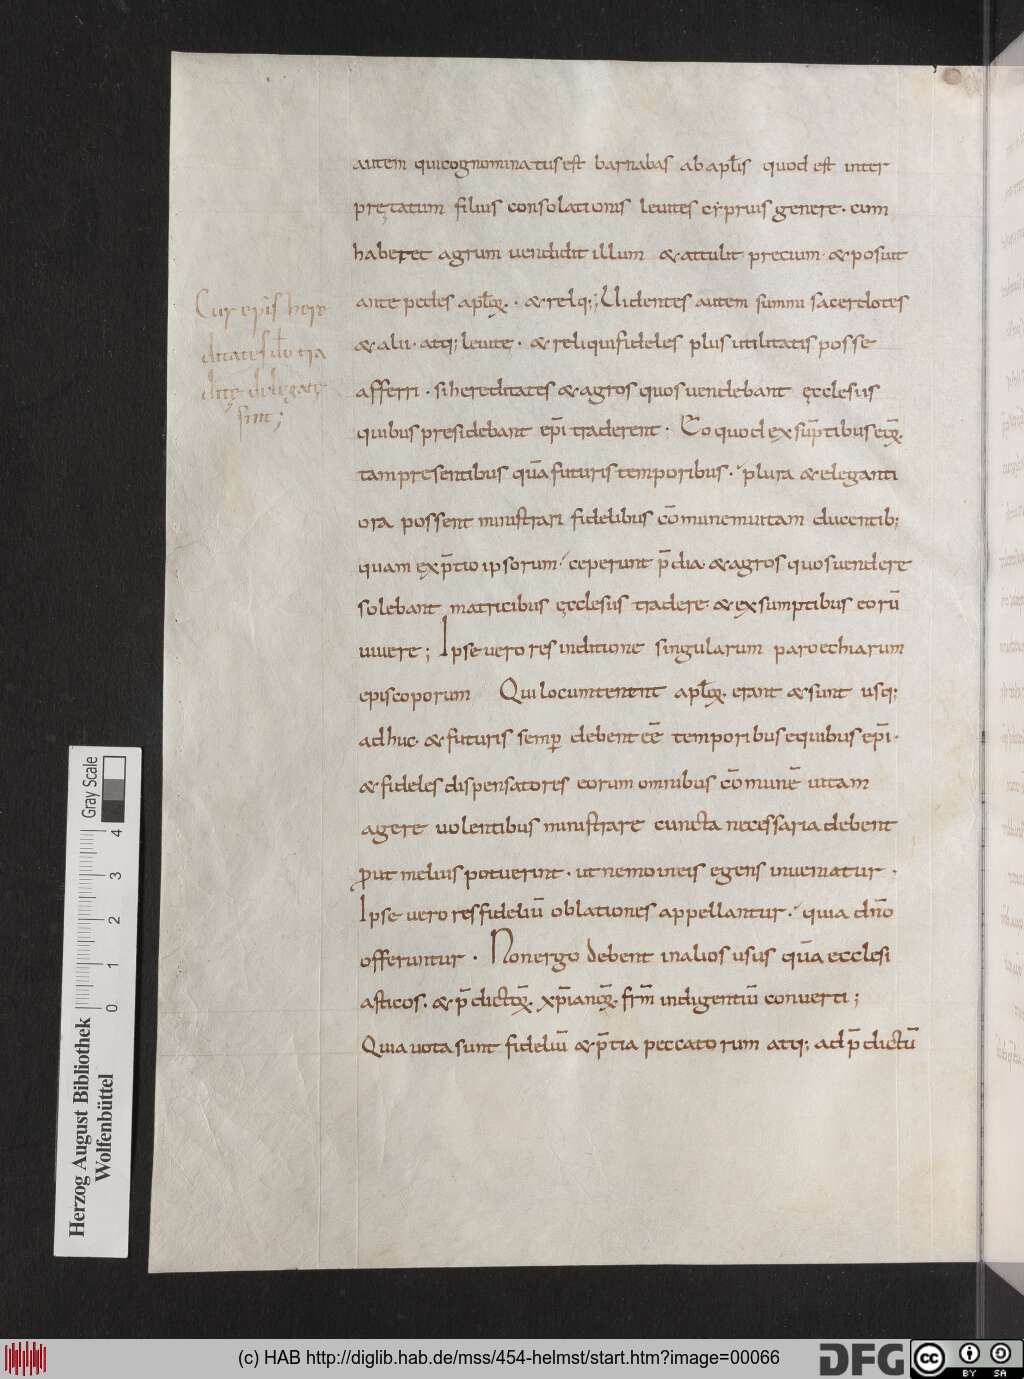 autem qui cognominatus est barnabas ab apłis quod est inter
pręta tum filius consolationis leuites cyprius genere · cum
haberet agrum uendidit illum & attulit precium · & posuit
ante pedes apłoꝝ · & relq; ; Uidentes autem summi sacerdotes
& alii · atq; leuitę · & reliqui fideles plus utilitatis posse
afferri · si hereditates & agros quos uendebant ęcclesiis
quibus presidebant ep̄i traderent ; Eo quod ex sūptibus eoꝝ ·
tam presentibus quā futuris temporibus · plura & eleganti
ora possent ministrari fidelibus cōmunem uitam ducentib;
quam ex p̄tio ipsorum · ceperunt p̄dia · & agros quos uendere
solebant matricibus ęcclesiis tradere · & ex sumptibus eorū
uiuere ; Ipse uero res inditione singularum paroechiarum
episcoporum Qui locum tenent apłoꝝ · erant & sunt usq;
adhuc · & futuris semꝑ debent eē temporibus e quibus ep̄i ·
& fideles dispensatores eorum omnibus cōmunē uitam
agere uolentibus ministrare cuncta necessaria debent
ꝓut melius potuerint · ut nemo in eis egens inueniatur ·
Ipse uero res fideliū oblationes appellantur · quia dn̄o
offeruntur · Non ergo debent in alios usus quā ecclesi
asticos · & p̄dictoꝝ · xp̄ianoꝝ · fr̄m indigentiū conuerti ;
Quia uota sunt fideliū & p̄tia peccatorum atq; ad p̄dictū
Cur ep̄is here
ditates
ditę delegatę
sint ;
Herzog August Bibliothek
Wolfenbüttel
0 1 2 3 4
Gray Scale
(c) HAB http://diglib.hab.de/mss/454-helmst/start.htm?image=00066
DFG
cc BY SA